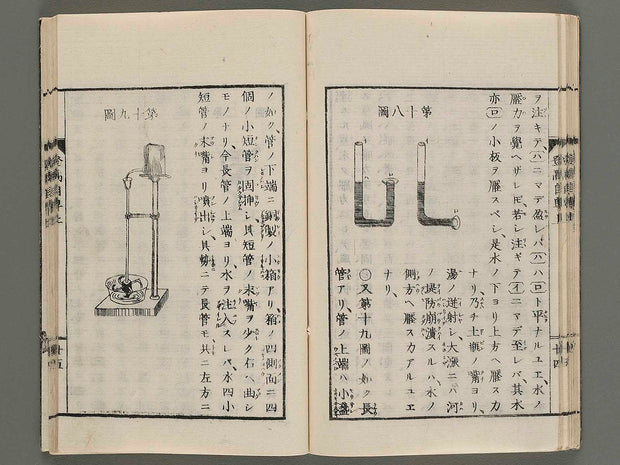 ヲ注キテ、ハニマデ盈レバ、ハハロト平ナルユヱ、水ノ
壓力ヲ覺ヘザレモ、若シ注ギテイニマデ至レバ、其水
亦ロノ小板ヲ壓スベシ、是水ノ下ヨリ上方ヘ壓スカ
ナリ、乃チ上瓶ノ嘴ヨリ、
湯ノ迸射シ、大漲ニハ河
ノ堤防崩潰スルハ、水ノ
側方ヘ壓スカアルユヱ
ナリ、
第十八圖
○又第十九圖ノ如ク長
管アリ、管ノ上端ハ小
ノ如ク、管ノ下端ニ銅製ノ小箱アリ、箱ノ四側面ニ四
個ノ小短管ヲ固挿シ、其短管ノ末嘴ヲ少ク右ヘ曲シ
モノナリ、今長管ノ上端ヨリ、水ヲ注入スレバ、水四小
短管ノ末嘴ヨリ噴出シ、其勢ニテ長管モ共ニ左方ニ
第十九圖
十四
十五